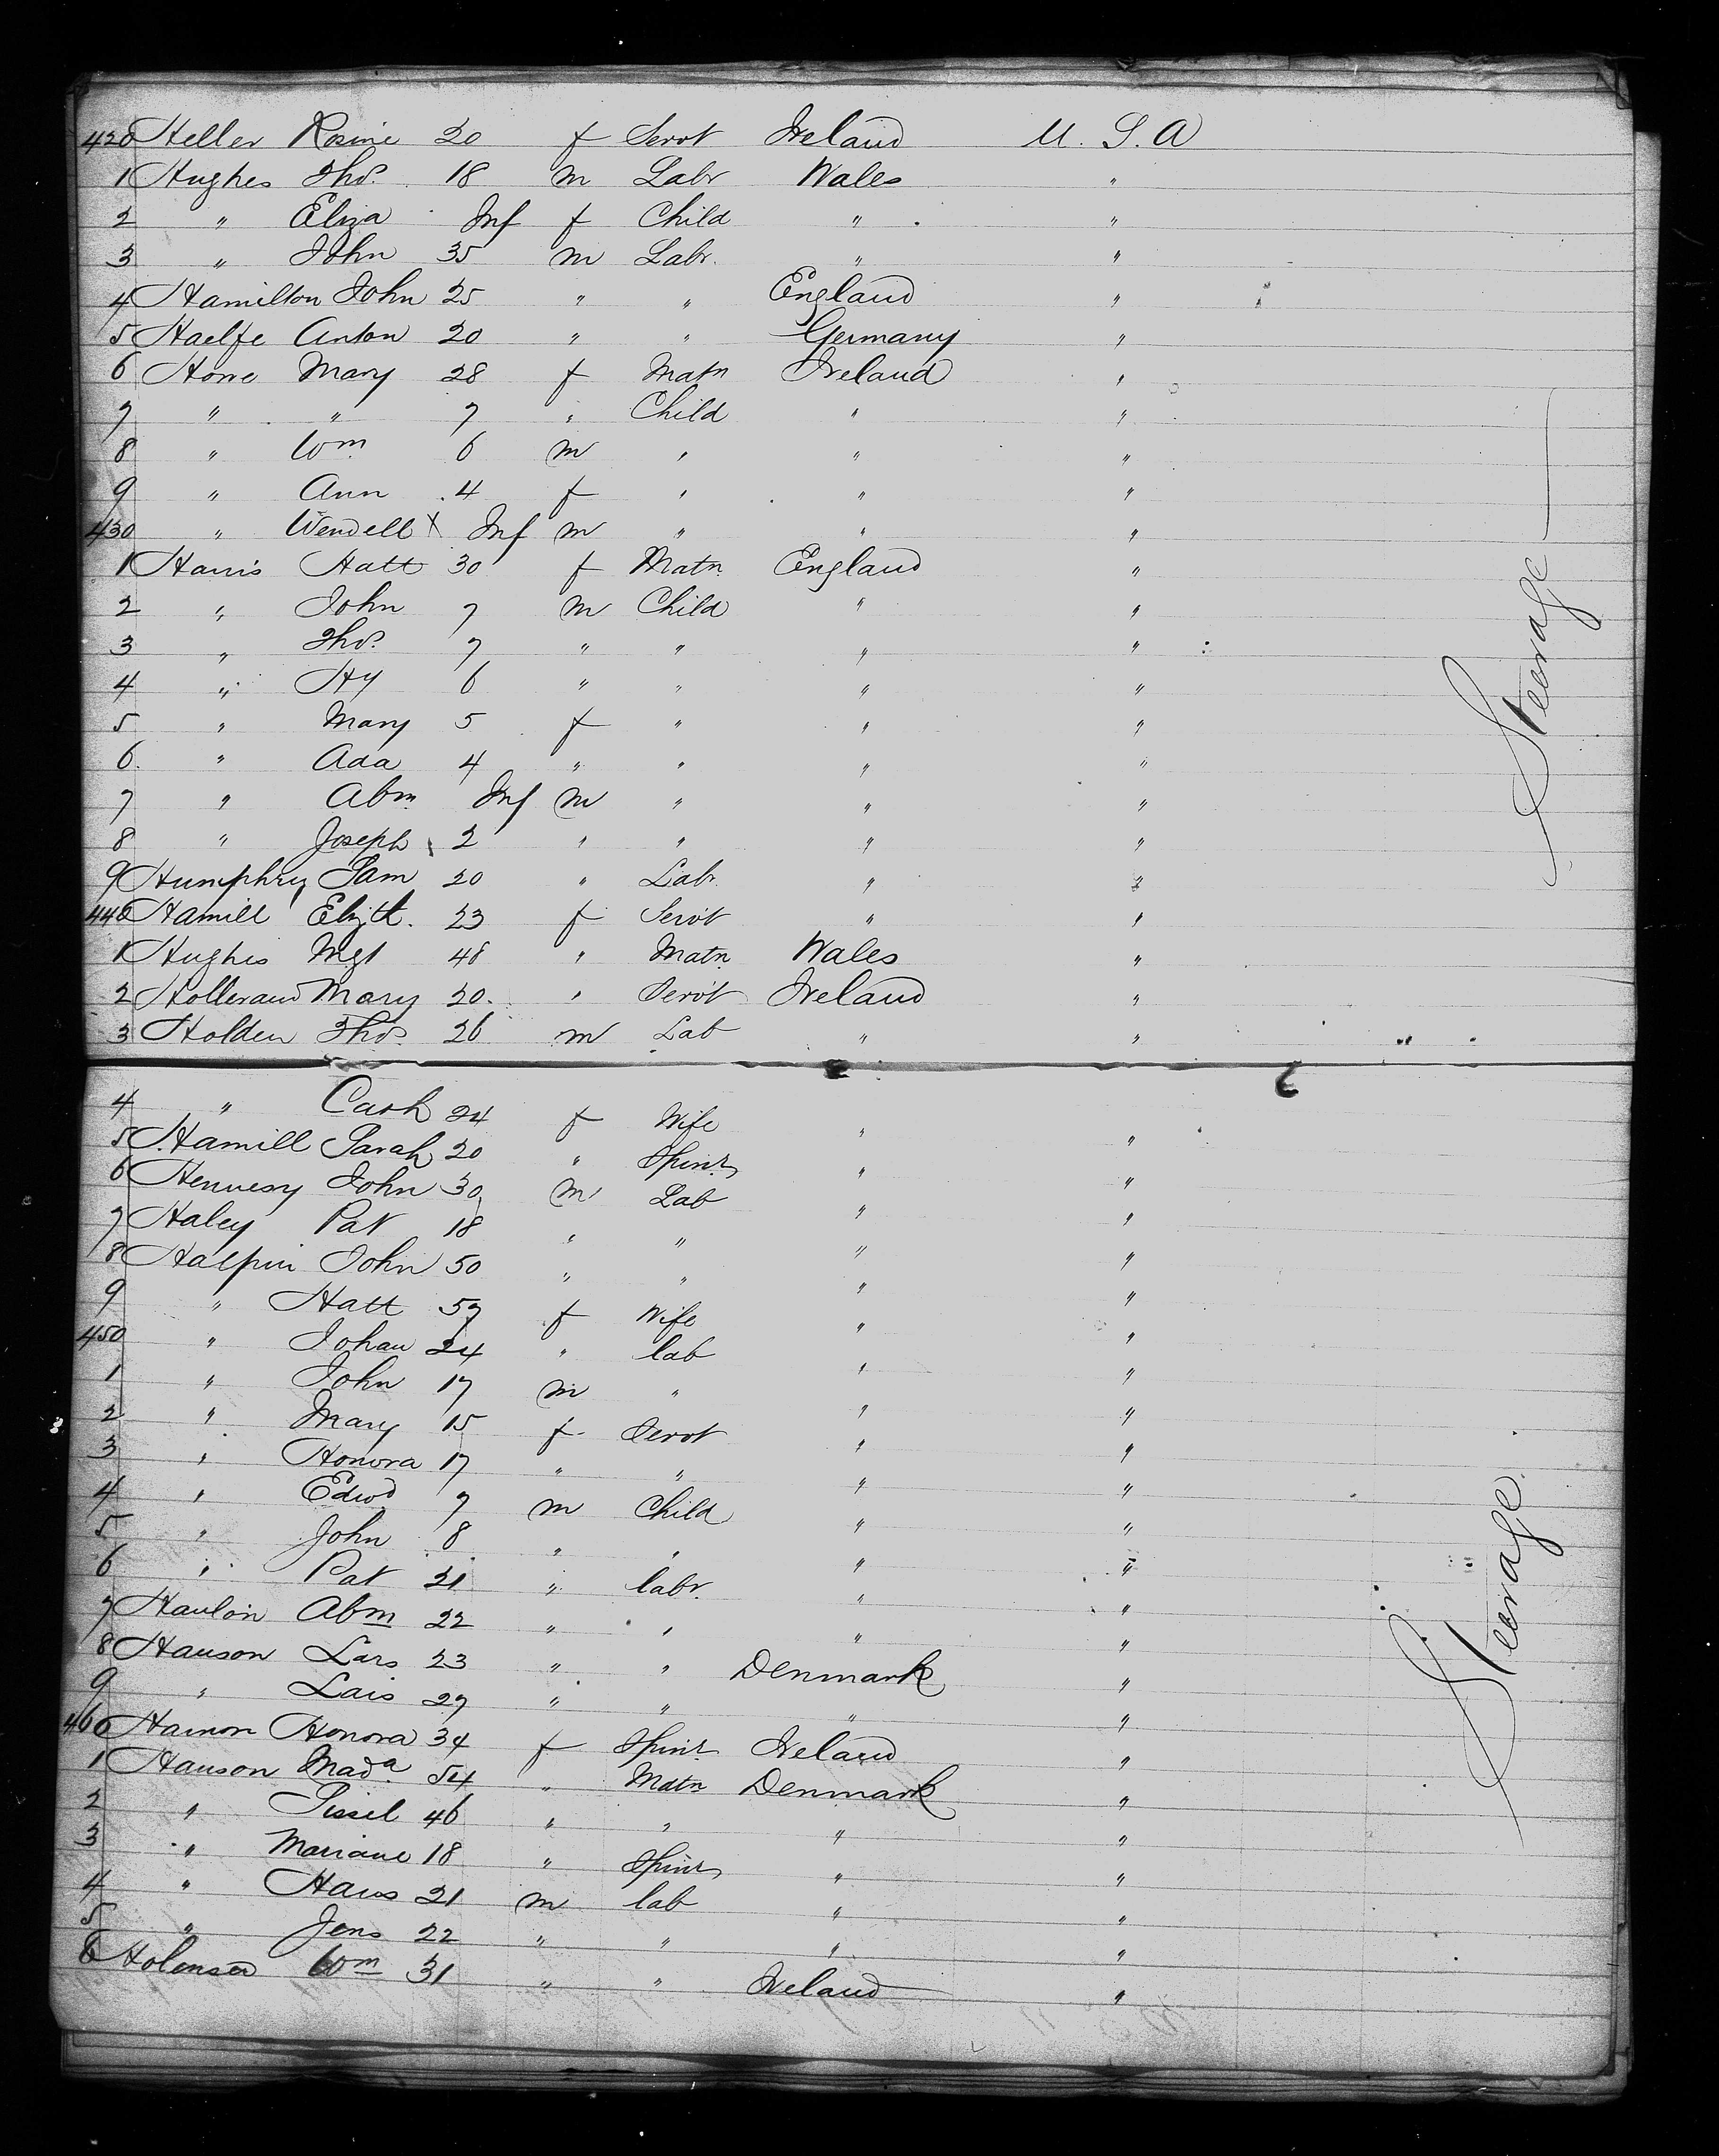 420 Heller Rosine 20 f Servt Ireland U. S. A
1 Hughes Thos. 18 m Labr Wales "
2 " Eliza Inf f Child " "
3 " John 35 m Labr. " "
4 Hamilton John 25 " " England "
5 Haelfe Anton 20 " " Germany "
6 Howe Mary 28 f Matn Ireland "
7 " " 7 " Child " "
8 " Wm 6 m " " "
9 " Ann 4 f " " "
430 " Wendell X Inf m " " "
1 Harris Hatt 30 f Matn England "
2 " John 7 m Child " "
3 " Thos. 7 " " " "
4 " Hy 6 " " " "
5 " Mary 5 f " " "
6 " Ada 4 " " " "
7 " Abm Inf m " " "
8 " Joseph 2 " " " "
9 Humphry Sam 20 " Labr " "
440 Hamill Elizth. 23 f Servt " "
1 Hughes Mgt 48 " Matn Wales "
2 Holleraud Mary 20. " Servt Ireland "
3 Holden Thos. 26 m Lab " "
Steerage
4 " Cath 24 f Wife " "
5 Hamill Sarah 20 " Spinr " "
6 Hennesy John 30 m Lab " "
7 Haley Pat 18 " " " "
8 Halpin John 50 " " " "
9 " Hatt 57 f Wife " "
450 " Johan 24 " lab " "
1 " John 17 m " " "
2 " Mary 15 f Servt " "
3 " Honora 17 " " " "
4 " Edwd 7 m Child " "
5 " John 8 " " " "
6 " Pat 21 " labr. " "
7 Hanlon Abm 22 " " " "
8 Hanson Lars 23 " " Denmark "
9 " Lais 27 " " " "
460 Hamon Honora 34 f Spinr Ireland "
1 Hanson Mada. 54 " Matn Denmark "
2 " Sissel 46 " " " "
3 " Mariane 18 " Spinr " "
4 " Hans 21 m lab " "
5 " Jens 22 " " " "
6 Wm 31 " " Ireland "
Steerage